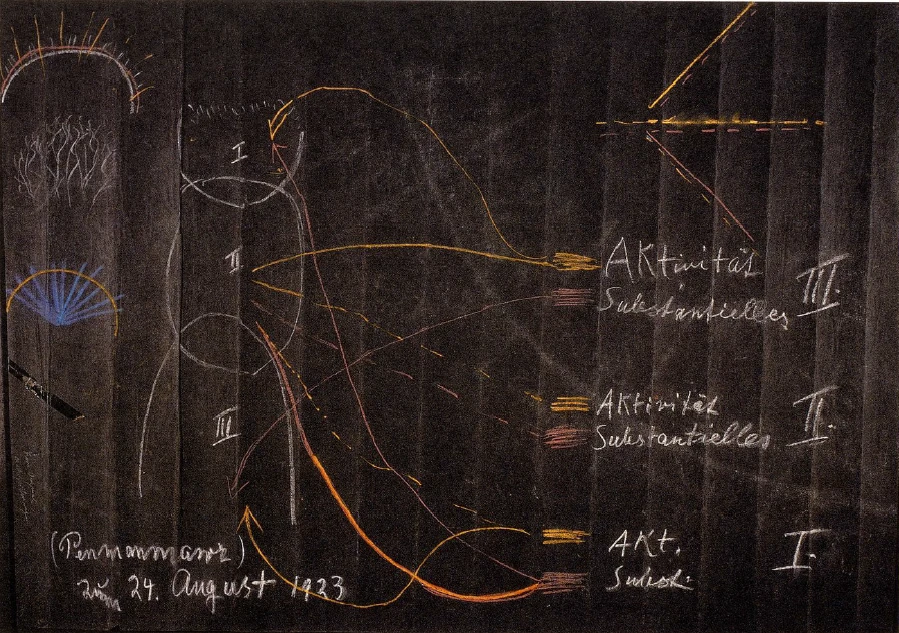 I
II
III
Aktivität
Substantielles III.
Aktivität
Substantielles II.
Akt.
Subst. I.
(Penmaenmawr)
zum 24. August 1923